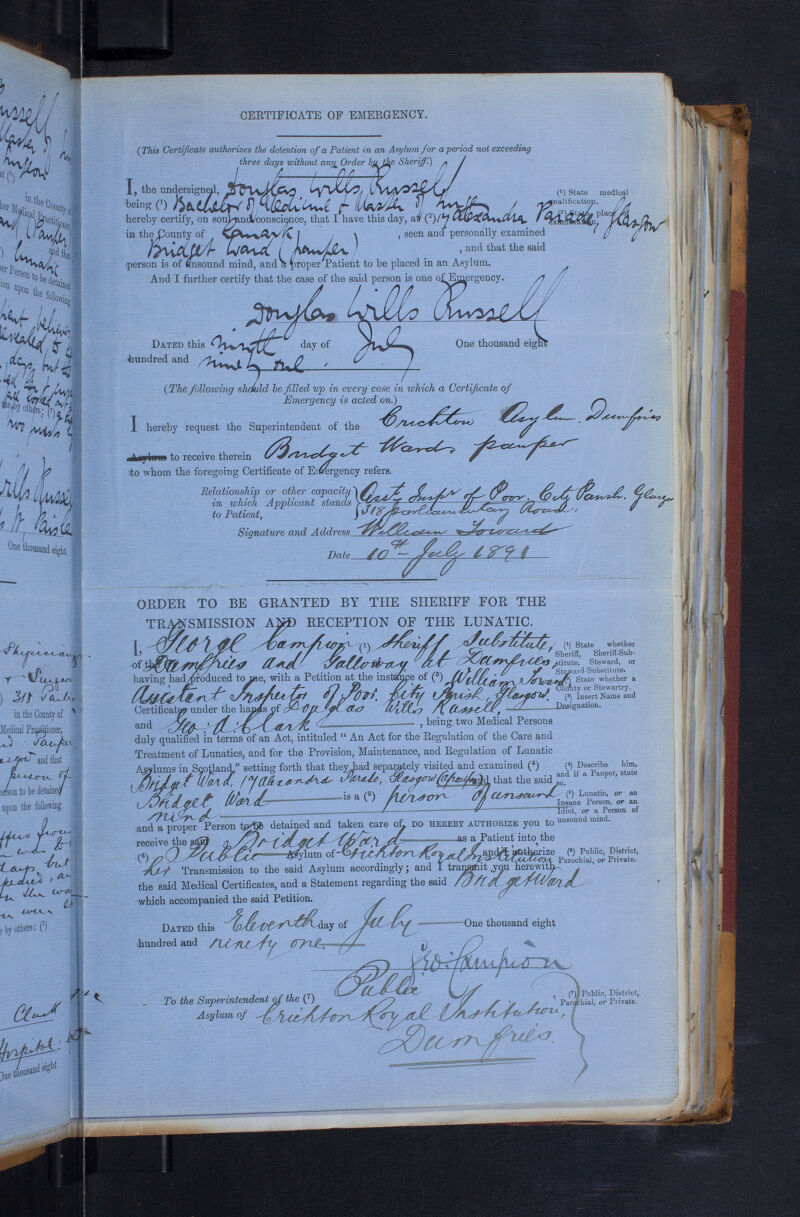 CERTIFICATE OF EMERGENCY.
(This Certificate authorizes the detention of a Patient in an Asylum for a period not exceeding
three days without any Order by the Sheriff.)
I, the undersigned, Douglas Wills Russell
(¹) State medical
qualification.
being (¹) Bachelor of Medicine & Master of Surgery
hereby certify, on soul and conscience, that I have this day, at (²) 17 Alexandra Parade, Glasgow
in the County of Lanark, seen and personally examined
Bridget Ward (pauper), and that the said
person is of unsound mind, and a proper Patient to be placed in an Asylum.
And I further certify that the case of the said person is one of Emergency.
Douglas Wills Russell
DATED this Ninth day of July One thousand eight
hundred and ninety one.
(The following should be filled up in every case in which a Certificate of
Emergency is acted on.)
I hereby request the Superintendent of the Crichton Asylum. Dumfries
Asylum to receive therein Bridget Ward, pauper
to whom the foregoing Certificate of Emergency refers.
Relationship or other capacity Asst Inspr of Poor. City Parish. Glasgow
in which Applicant stands 318 Parliamentary Road.
to Patient,
Signature and Address William Soward
Date 10th July 1891
ORDER TO BE GRANTED BY THE SHERIFF FOR THE
TRANSMISSION AND RECEPTION OF THE LUNATIC.
I, George Campion (¹) Sheriff Substitute,
(¹) State whether
Sheriff, Sheriff-Sub-
stitute, Steward, or
Steward-Substitute.
of the Dumfries and Galloway at Dumfries,
having had produced to me, with a Petition at the instance of (³) William Soward
(²) State whether a
County or Stewartry.
Assistant Inspector of Poor. City Parish. Glasgow
(³) Insert Name and
Designation.
Certificates under the hands of Douglas Wills Russell,
and Geo: A. Clark, being two Medical Persons
duly qualified in terms of an Act, intituled "An Act for the Regulation of the Care and
Treatment of Lunatics, and for the Provision, Maintenance, and Regulation of Lunatic
Asylums in Scotland," setting forth that they had separately visited and examined (⁴)
(⁴) Describe him,
and if a Pauper, state
so.
Bridget Ward, 17 Alexandra Parade, Glasgow (a pauper) and that the said
Bridget Ward is a (⁵) person of unsound
(⁵) Lunatic, or an
Insane Person, or an
Idiot, or a Person of
unsound mind.
mind
and a proper Person to be detained and taken care of, DO HEREBY AUTHORIZE you to
receive the said Bridget Ward as a Patient into the
(⁶) Public Asylum of Crichton Royal Institution, and I authorize
(⁶) Public, District,
Parochial, or Private.
her Transmission to the said Asylum accordingly; and I transmit you herewith
the said Medical Certificates, and a Statement regarding the said Bridget Ward
which accompanied the said Petition.
DATED this Eleventh day of July One thousand eight
hundred and ninety one.
Geo: Campion
To the Superintendent of the (⁷) Public
(⁷) Public, District,
Parochial, or Private.
Asylum of Crichton Royal Institution,
Dumfries.